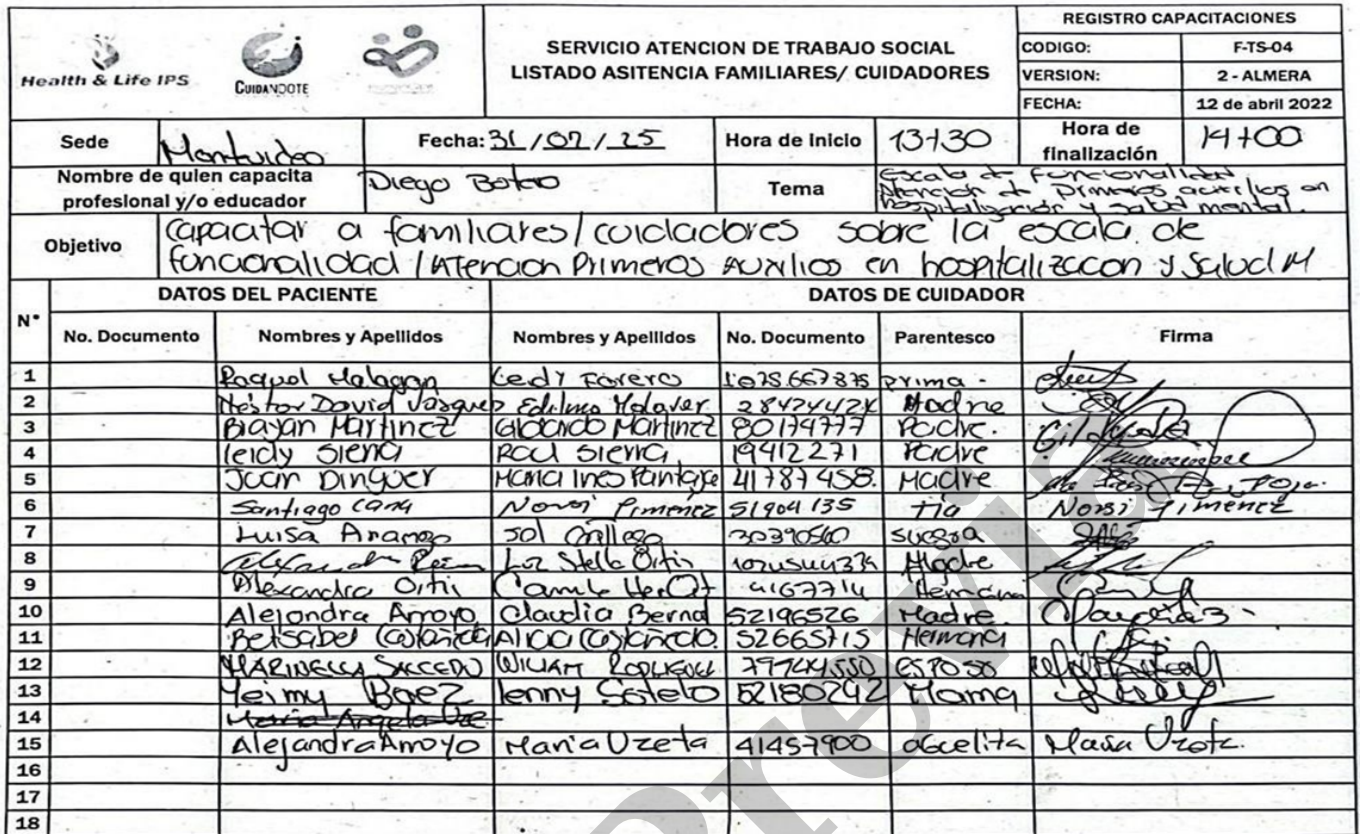 Health & Life IPS
CUIDANDOTE
SERVICIO ATENCION DE TRABAJO SOCIAL
LISTADO ASITENCIA FAMILIARES/ CUIDADORES
REGISTRO CAPACITACIONES
CODIGO: F-TS-04
VERSION: 2 - ALMERA
FECHA: 12 de abril 2022
Sede Montvideo Fecha: 31/07/25 Hora de inicio 13+30 Hora de finalización 14+00
Nombre de quien capacita profesional y/o educador Diego Botero Tema Escala de Funcionalidad
Atención de Primeros auxilios en
hospitalización y salud mental.
Objetivo Capacitar a familiares/cuidadores sobre la escala de
funcionalidad /Atencion Primeros Auxilios en hospitalizacion y Salud M
DATOS DEL PACIENTE DATOS DE CUIDADOR
N° No. Documento Nombres y Apellidos Nombres y Apellidos No. Documento Parentesco Firma
1 Raquel Malagon Leidy Forero 1.075.667.875 prima.
2 Néstor David Vásquez 28424424 Madre
3 Brayan Martinez Gildardo Martinez 80174777 Padre.
4 leidy Sierra Raul Sierra 19412271 Padre
5 Juan Dinguer Maria Ines 41787458. Madre
6 Santiago Cana Norsi Pimenez 51904135 tia Norsi Jimenez
7 Luisa Arango Sol Gallego 30390560 suegra
8 Luz Stella Ortis Madre
9 Alexandra Ortis 4167714 Hermana
10 Alejandra Arroyo Claudia Bernal 52196526 Madre
11 Betsabel Castañeda Alicia Castañeda. 52665715 Hermana
12 MARINELLA SALCEDO WILIAM RODRIGUEZ 79744550 esposo
13 Yeimy Baez Jenny Sotelo 52180292 Mama
14
15 Alejandra Arroyo Maria Uzeta 41457900 abuelita Maria Uzeta.
16
17
18
Previa